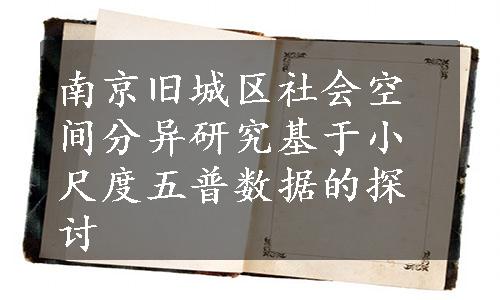 南京旧城区社会空
间分异研究基于小
尺度五普数据的探
讨